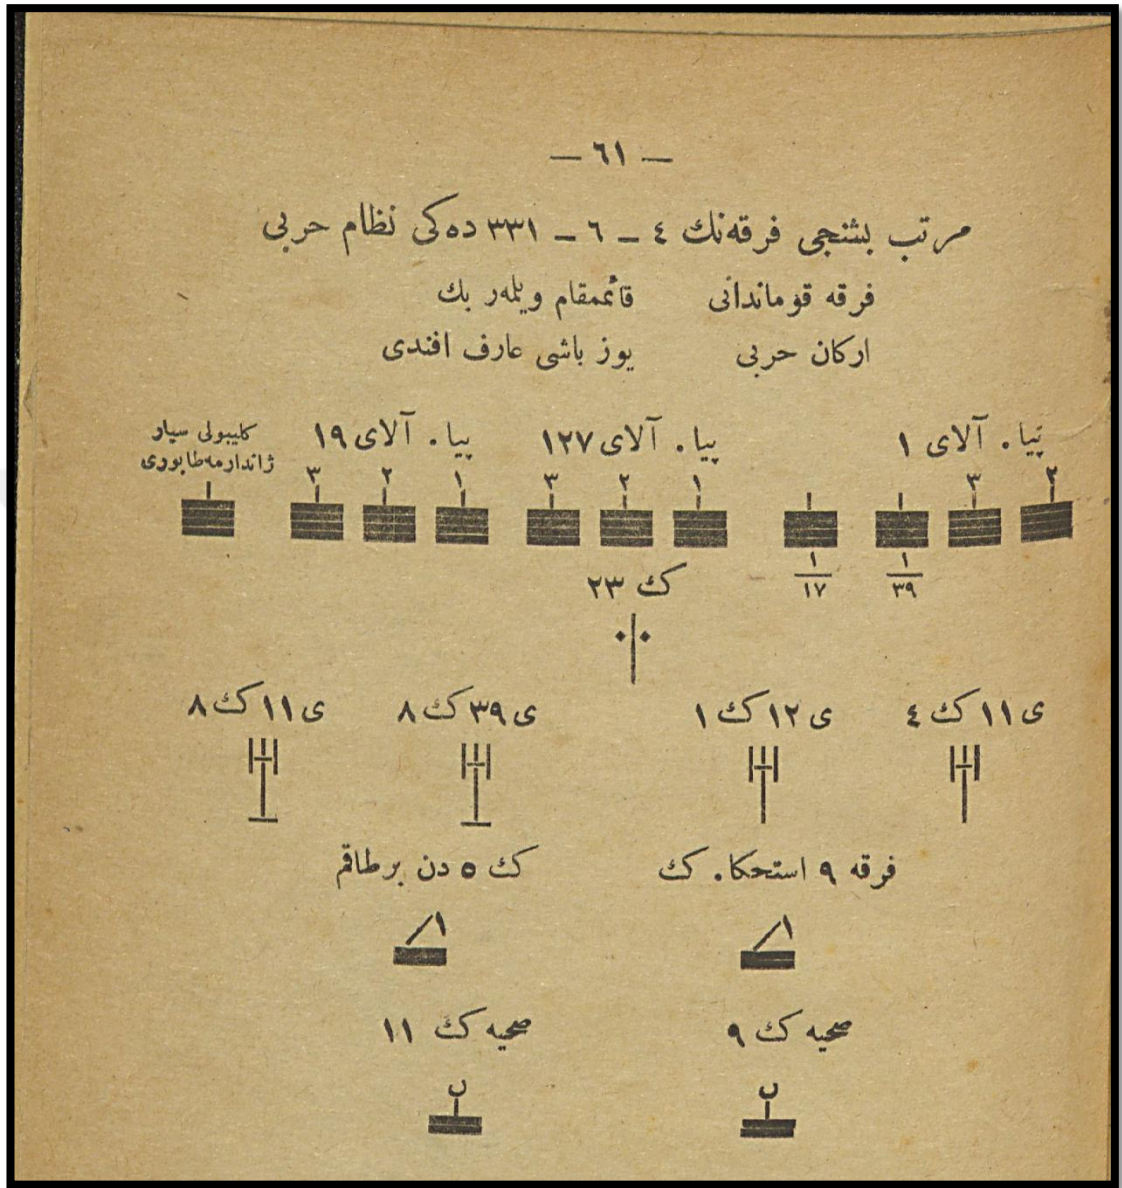 — ٦١ —
مرتب بشنجی فرقه‌نك ٤ – ٦ – ٣٣١ ده‌كی نظام حربی
فرقه قوماندانی قائممقام ویلمه‌ر بك
اركان حربی یوز باشی عارف افندی
پیا. آلای ١ پیا. آلای ١٢٧ پیا. آلای ١٩ كلیبولی سیار
ژاندارمه طابوری
٢ ٣ ١ ٢ ٣ ١ ٢ ٣
١/٣٩ ١/١٧
ك ٢٣
ی ١١ ك ٤ ی ١٢ ك ١ ی ٣٩ ك ٨ ی ١١ ك ٨
فرقه ٩ استحكا. ك ك ٥ دن برطاقم
صحیه ك ٩ صحیه ك ١١